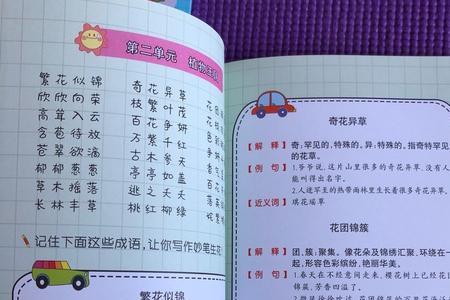 第二单元 植物王
繁花似锦 奇花异草
欣欣向荣 枝繁叶茂
高耸入云 百花争妍
含苞待放 万紫千红
苍翠欲滴 古木参天
郁郁葱葱 亭亭如盖
草木摇落 逃之夭夭
长林丰草 桃红柳绿
记住下面这些成语,让你写作妙笔生花
繁花似锦
奇花异草
【解释】奇:罕见的,特殊的。异:特殊。指奇特罕见
的花草。
【例句】1.爷爷说,这片山里很多的奇花异草,没有人
能叫得出名字。
2.人迹罕至的热带雨林里生长着很多奇花异草,
【近义词】琪花瑶草
花团锦簇
【解释】团、簇:聚集。像花朵及锦绣汇聚,环绕在一
起,形容色彩缤纷,艳丽华美。
【例句】1.春天在不经意间走来,樱花树上已经花团
锦簇,芳香四溢了。